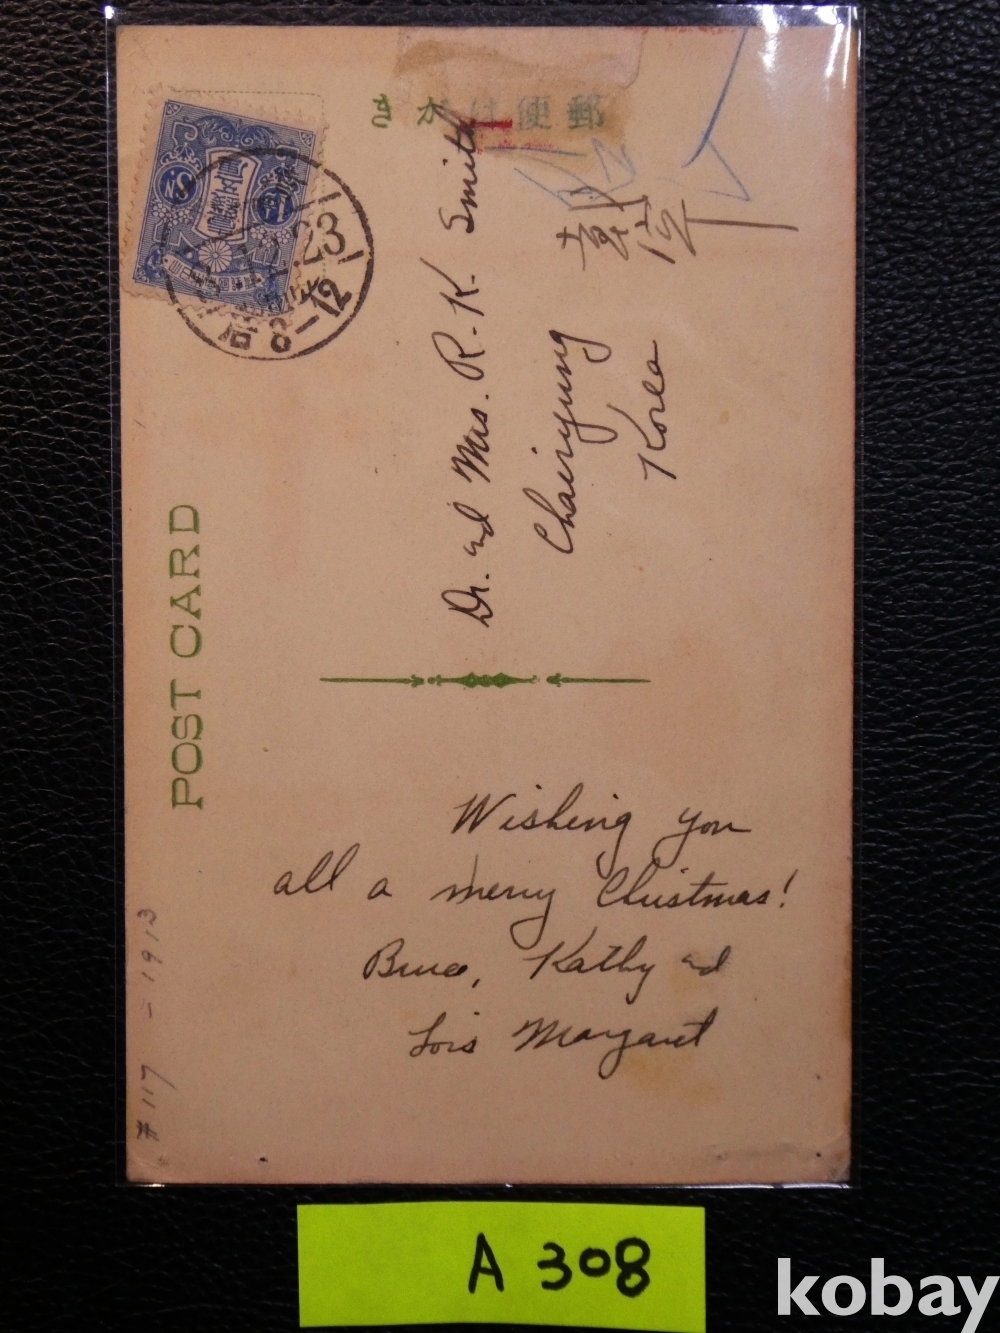 きかは便郵
POST CARD
Dr. and Mrs. R. K. Smith
Chairyung
Korea
載寧
Wishing you
all a merry Christmas!
Bruce, Kathy and
Lois Margaret
#117 - 1913
23
8-12
A 308
kobay